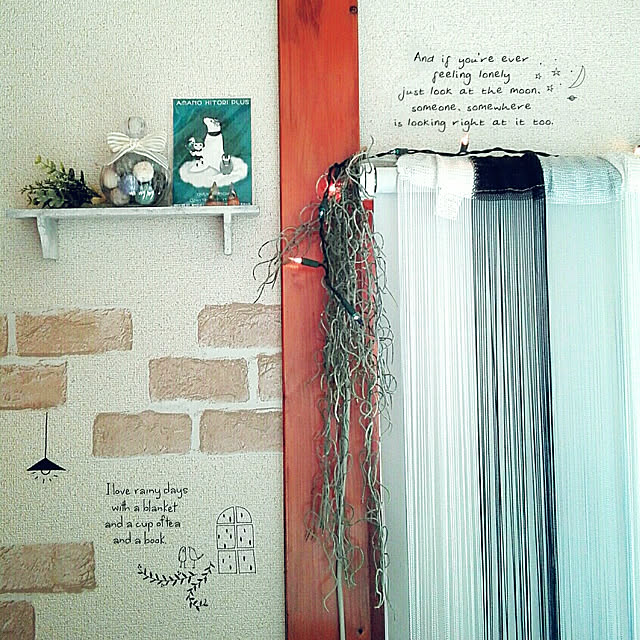 And if you're ever
feeling lonely
just look at the moon.
someone, somewhere
is looking right at it too.
AMANO HITORI PLUS
I love rainy days
with a blanket
and a cup of tea
and a book.